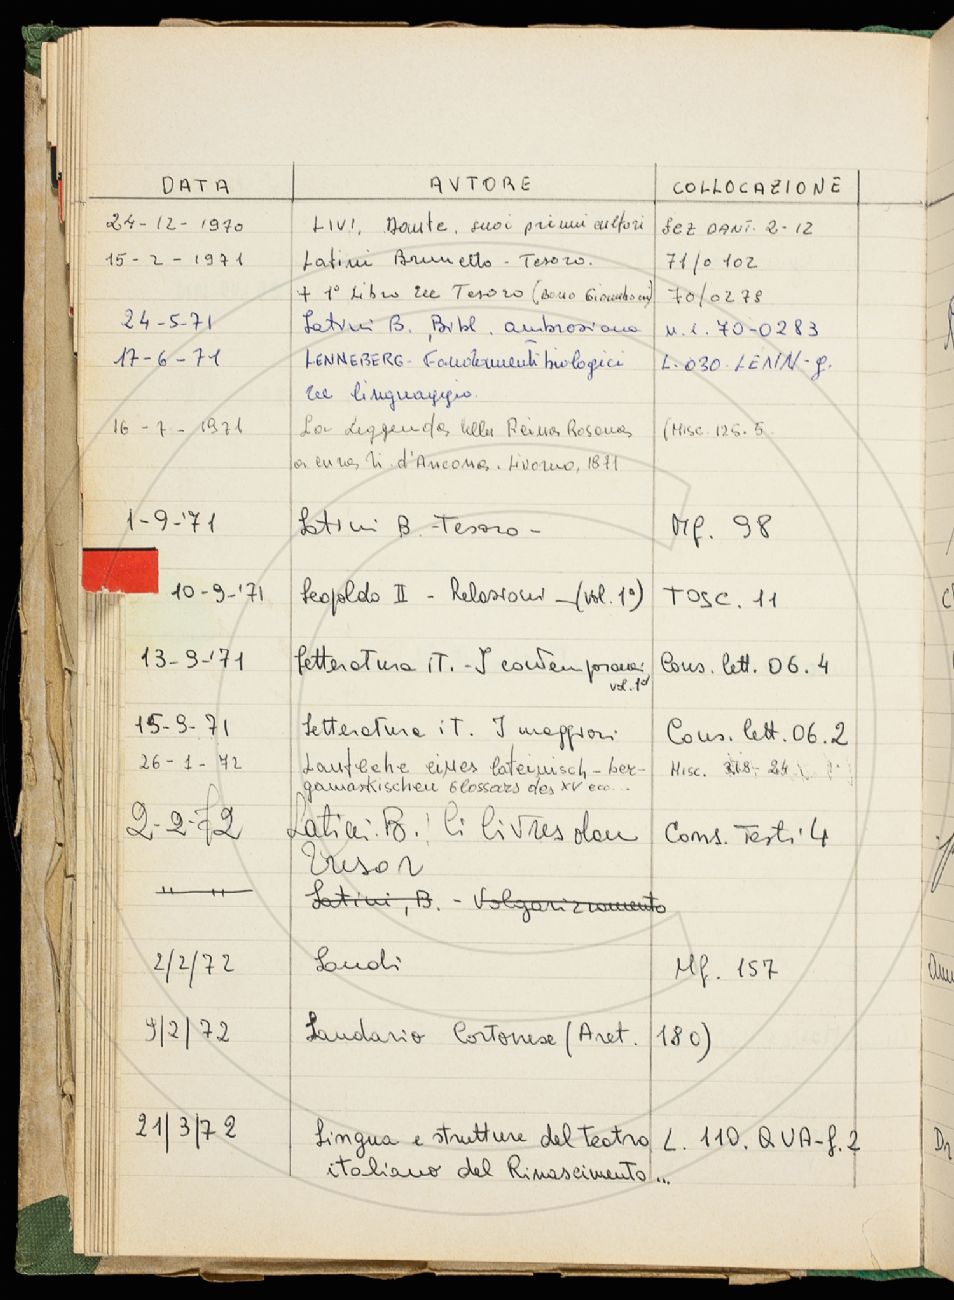 DATA AVTORE COLLOCAZIONE
24-12-1970 LIVI, Dante, suoi primi cultori SEZ DANT. 2-12
15-2-1971 Latini Brunetto - Tesoro. 71/0 102
+ 1° Libro del Tesoro (Bono Giamboni) 70/0278
24-5-71 Latini B., Bibl. ambrosiana 70-0283
17-6-71 LENNEBERG - Fondamenti biologici L. 030.
del linguaggio.
16-7-1971 La Leggenda della Reina Rosana (Misc. 125.5.
a cura di d'Ancona. Livorno, 1871
1-9-'71 Latini B. - Tesoro - Mf. 98
10-9-'71 Leopoldo II - Relazioni - (vol. 1°) TOSC. 11
13-9-'71 Letteratura iT. - I contemporanei Cons. lett. 06.4
vol. 1°
15-9-71 Letteratura iT. I maggiori Cons. lett. 06.2
26-1-72 eines lateinisch-ber- Misc. 24
gamaskischen Glossars des XV ecc...
2-2-72 Latini B. li livres dou Cons. Testi 4
Tresor
Latini, B. - Volgarizzamento
2/2/72 Laudi Mf. 157
9/2/72 Laudario Cortonese (Aret. 180)
21/3/72 Lingua e strutture del teatro L. 110. QUA-f.2
italiano del Rinascimento...